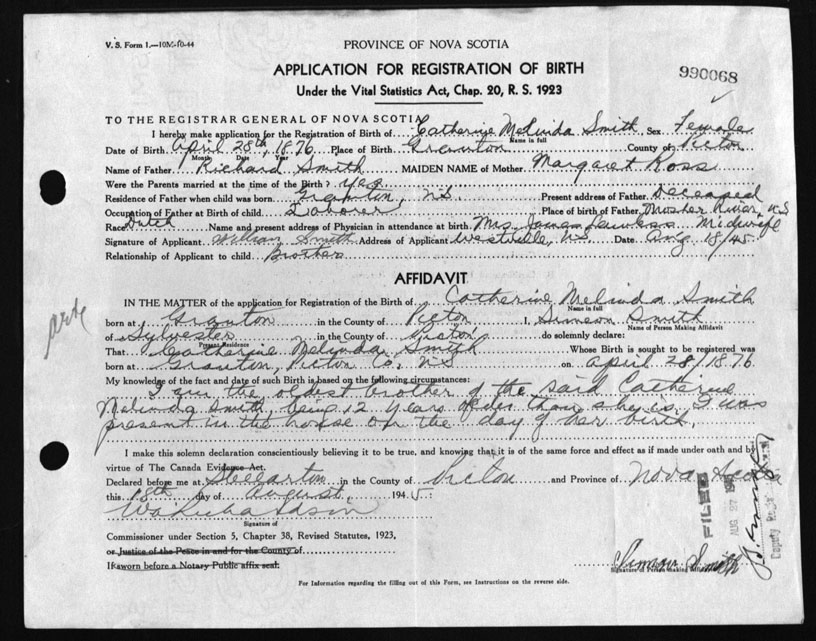 V. S. Form 1.—10M-10-44
PROVINCE OF NOVA SCOTIA
APPLICATION FOR REGISTRATION OF BIRTH
990068
Under the Vital Statistics Act, Chap. 20, R. S. 1923
TO THE REGISTRAR GENERAL OF NOVA SCOTIA
I hereby make application for the Registration of Birth of Catherine Melinda Smith Sex Female
Name in full
Date of Birth April 28th, 1876 Place of Birth Granton County of Pictou
Month Day Year
Name of Father Richard Smith MAIDEN NAME of Mother Margaret Ross
Were the Parents married at the time of the Birth? Yes
Residence of Father when child was born Granton, N.S. Present address of Father Deceased
Occupation of Father at Birth of child Laborer Place of birth of Father Mosher River, N.S
Race Dutch Name and present address of Physician in attendance at birth Mrs James Midwife
Signature of Applicant William Smith Address of Applicant Westville, N.S. Date Aug 18/45
Relationship of Applicant to child Brother
AFFIDAVIT
IN THE MATTER of the application for Registration of the Birth of Catherine Melinda Smith
Name in full
born at Granton in the County of Pictou I, Simeon Smith
Name of Person Making Affidavit
of Sylvester in the County of Pictou do solemnly declare:
Present Residence
That Catherine Melinda Smith Whose Birth is sought to be registered was
born at Granton, Pictou Co. N.S on April 28/1876
My knowledge of the fact and date of such Birth is based on the following circumstances:
I am the oldest brother of the said Catherine
Melinda Smith, being 12 years older than she is. I was
present in the house on the day of her birth.
I make this solemn declaration conscientiously believing it to be true, and knowing that it is of the same force and effect as if made under oath and by
virtue of The Canada Evidence Act.
Declared before me at Stellarton in the County of Pictou and Province of Nova Scotia
this 18th day of August, 1945:
Signature of
Commissioner under Section 5, Chapter 38, Revised Statutes, 1923,
or Justice of the Peace in and for the County of
If sworn before a Notary Public affix seal.
Simeon Smith
Signature of Person making Affidavit
For Information regarding the filling out of this Form, see Instructions on the reverse side.
FILED
AUG 27
Deputy